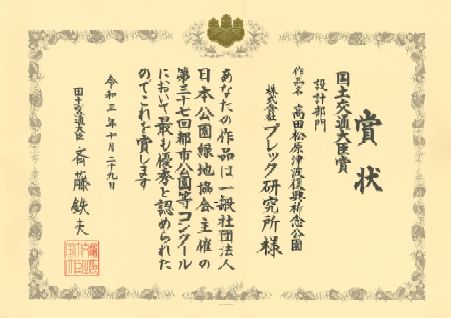 賞状
国土交通大臣賞
設計部門
作品名 高田松原津波復興祈念公園
株式会社 プレック研究所 様
あなたの作品は一般社団法人
日本公園緑地協会主催の
第三十七回都市公園等コンクール
において最も優秀と認められた
のでこれを賞します
令和三年十月二十九日
国土交通大臣 斉藤鉄夫